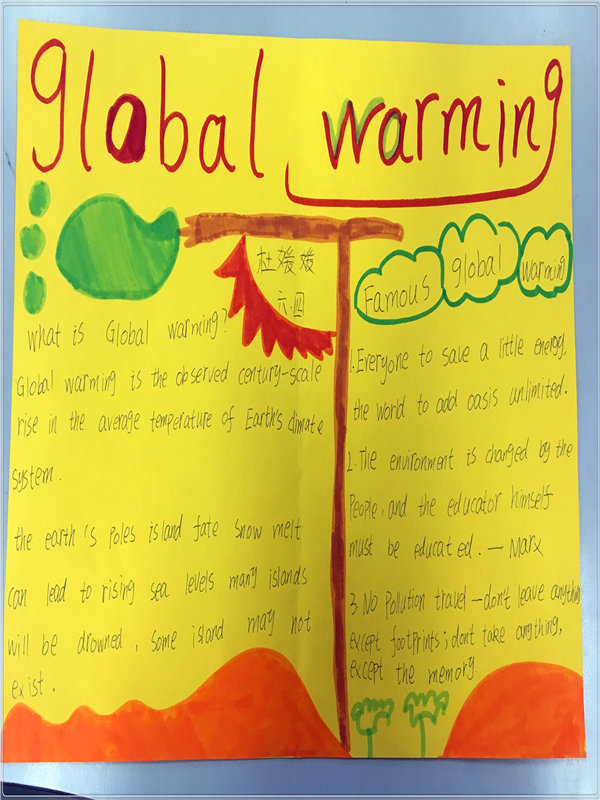 global warming
杜媛媛
六.四
What is Global warming?
Global warming is the observed century-scale
rise in the average temperature of Earth's climate
system.
the earth's poles island fate snow melt
can lead to rising sea levels many islands
will be drowned, some island may not
exist.
Famous global warming
1.Everyone to save a little energy,
the world to add oasis unlimited.
2.The environment is changed by the
People, and the educator himself
must be educated.—Marx
3.No Pollution travel—don't leave anything
except footprints; don't take anything,
except the memory.